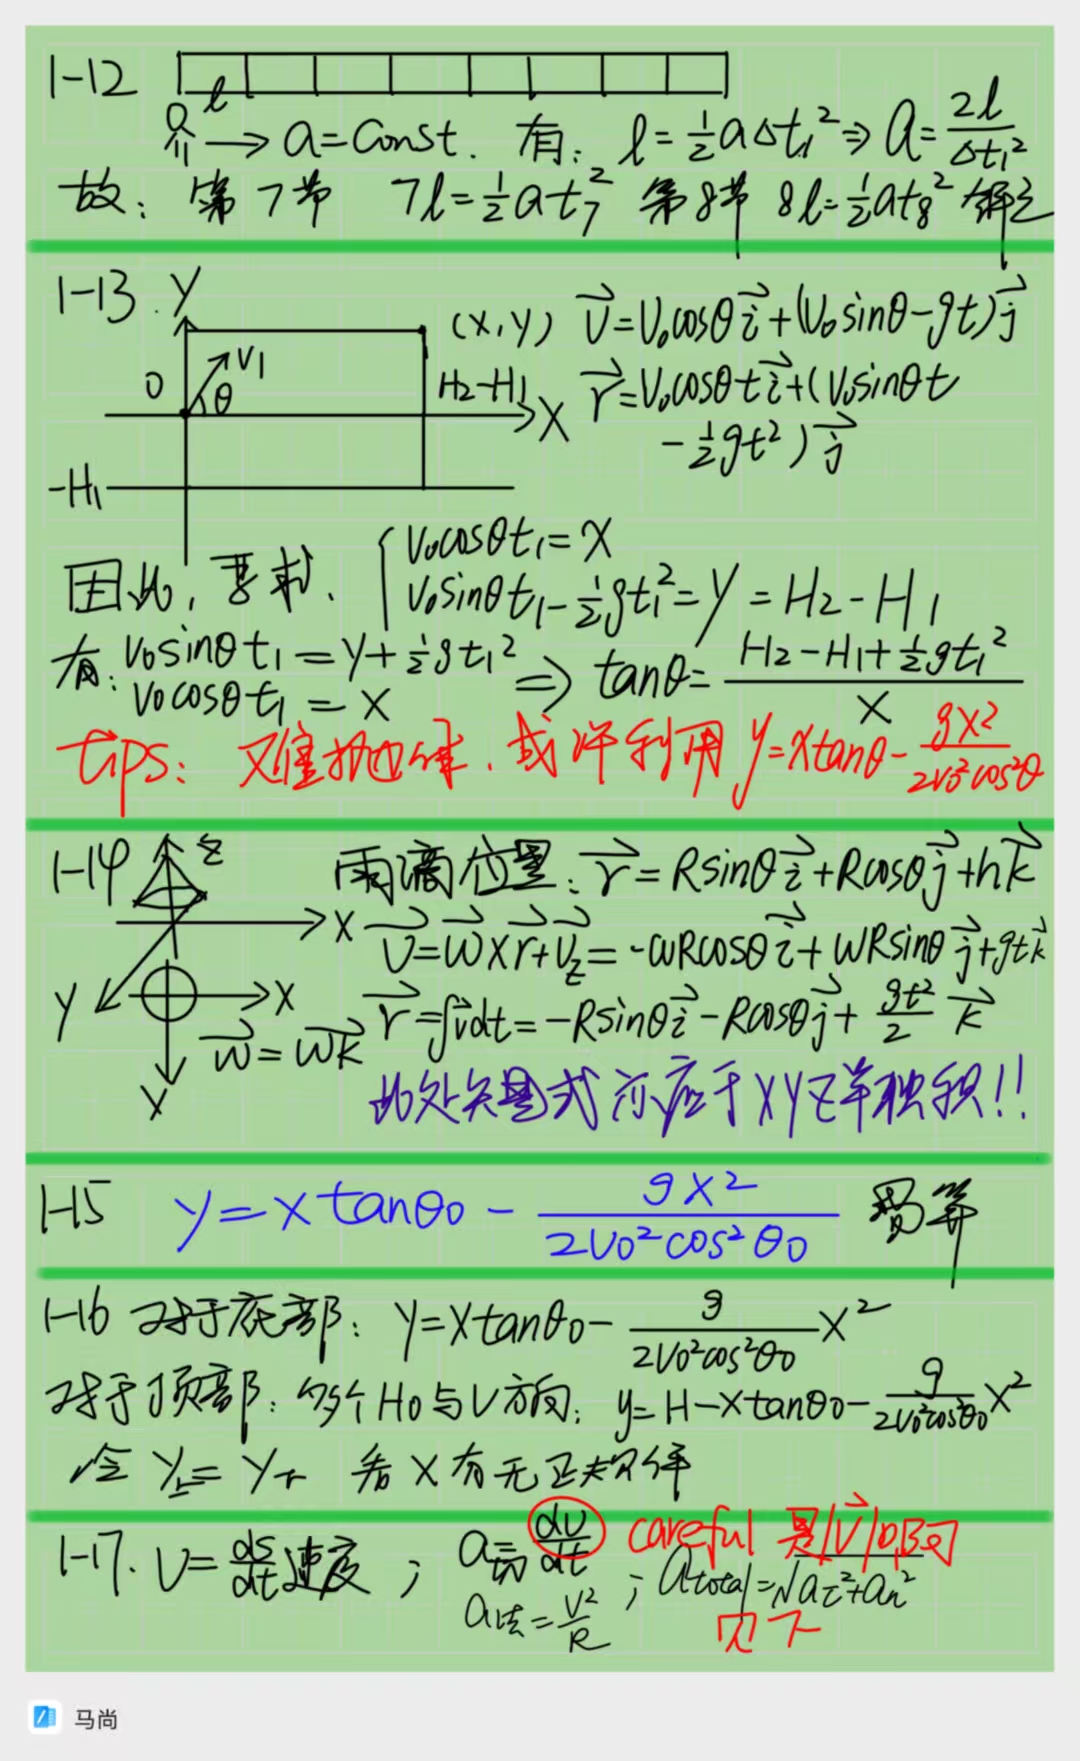 1-12
l
→ a=Const. 有: l=½aΔt₁² ⇒ a=2l/Δt₁²
故: 第7节 7l=½at₇² 第8节 8l=½at₈² 解之
1-13. Y
(x,y) v⃗=V₀cosθi⃗+(V₀sinθ-gt)j⃗
V₁ θ O H₂-H₁ X
r⃗=V₀cosθti⃗+(V₀sinθt
-½gt²)j⃗
-H₁
因此, 要求. { V₀cosθt₁=X
V₀sinθt₁-½gt₁²=Y=H₂-H₁
有: V₀sinθt₁=Y+½gt₁²
V₀cosθt₁=X
⇒ tanθ=(H₂-H₁+½gt₁²)/X
tips: 又值抛体. 或许利用 y=xtanθ-gx²/2v₀²cos²θ
1-14 Z
X
Y
雨滴位置: r⃗=Rsinθi⃗+Rcosθj⃗+hk⃗
v⃗=ω⃗×r⃗+v⃗z=-ωRcosθi⃗+ωRsinθj⃗+gtk⃗
X
r⃗=∫v⃗dt=-Rsinθi⃗-Rcosθj⃗+gt²/2 k⃗
ω⃗=ωk⃗
Y
此处矢量式 应于XYZ单独积!!
1-15 y=xtanθ₀-gx²/2v₀²cos²θ₀
1-16 对于底部: y=xtanθ₀-g/2v₀²cos²θ₀ x²
对于顶部: 多个H₀与V方向: y=H-xtanθ₀-g/2v₀²cos²θ₀ x²
令 Y上=Y下 看X有无正大解
1-17. v=ds/dt 速度; a切=dv/dt careful 是|v⃗|
a法=v²/R; a total=√aτ²+an²
见下
马尚